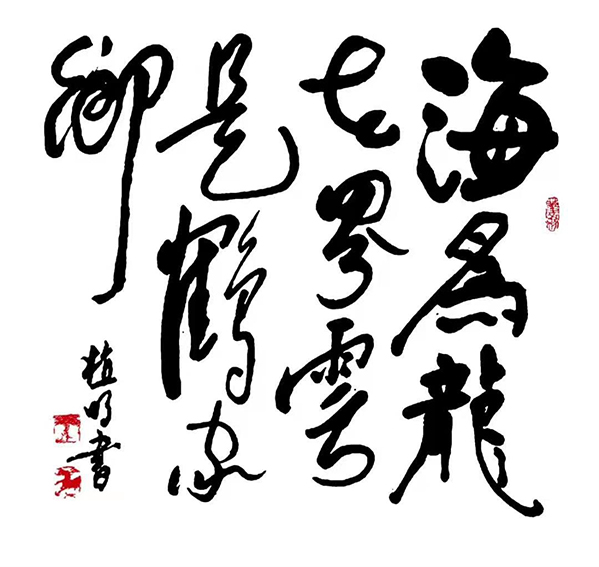 海為龍
世界雲
是鶴家
鄉
植明書